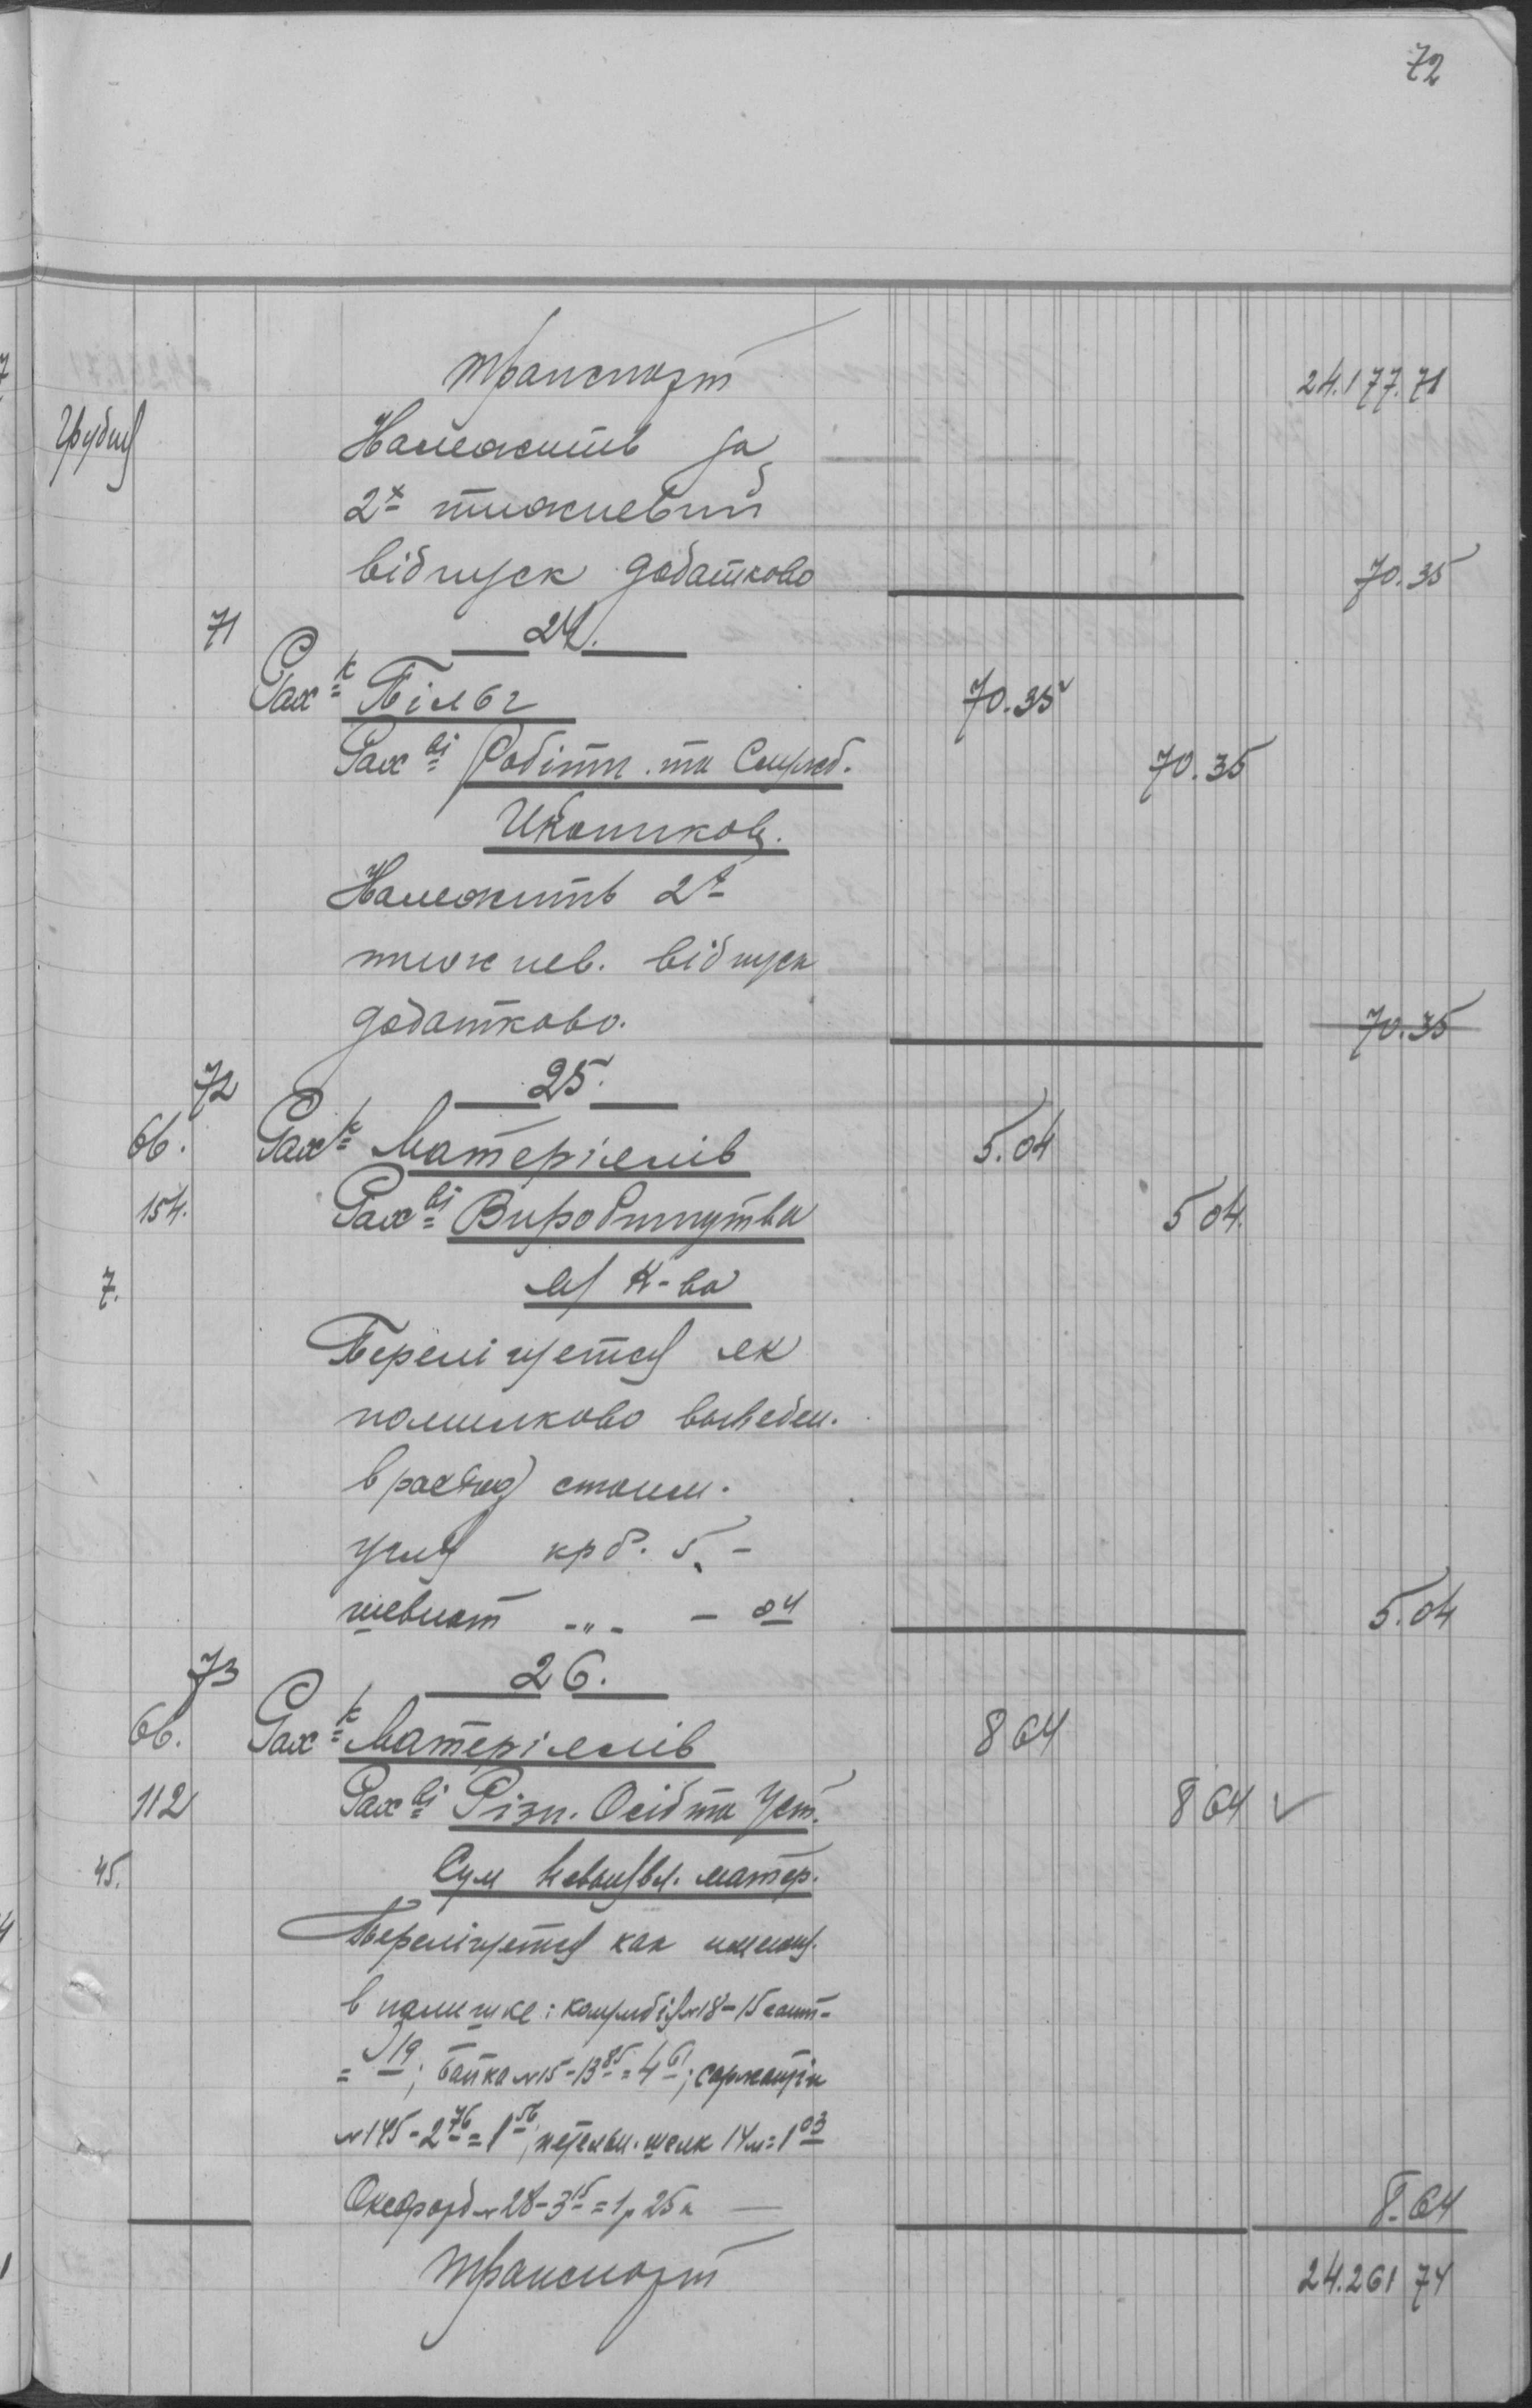 72
Транспорт 24.177.71
Грудня Належить за
2х тижневий
відпуск додатково 70.35
71 24.
Рах к Пільг 70.35
Рах ві Робітн. та Службов. 70.35
Належить 2х
тижнев. відпуск
додатково. 70.35
72 25.
66. Рах к Матеріялів 5.04
154. Рах ві Виробництва 5 04
7. К-ва
Перелічується як
помилково выведен.
в расход стоим.
угля крб. 5. -
шевиот -"- - 04 5.04
73 26.
66. Рах к Матеріялів 8 64
112 Рах ві Різн. Осіб та Уст. 8 64 ✓
45. Сум матер.
Перелічується как
в : №18 - 15 сант -
= 19; Байка №15 - 13 85 = 4 61;
№145 - 2 76 = 1 56, петельн. шелк 14м = 1 03
Оксфорд №28 - 3 15 = 1р 25к — 8.64
Транспорт 24.261 74